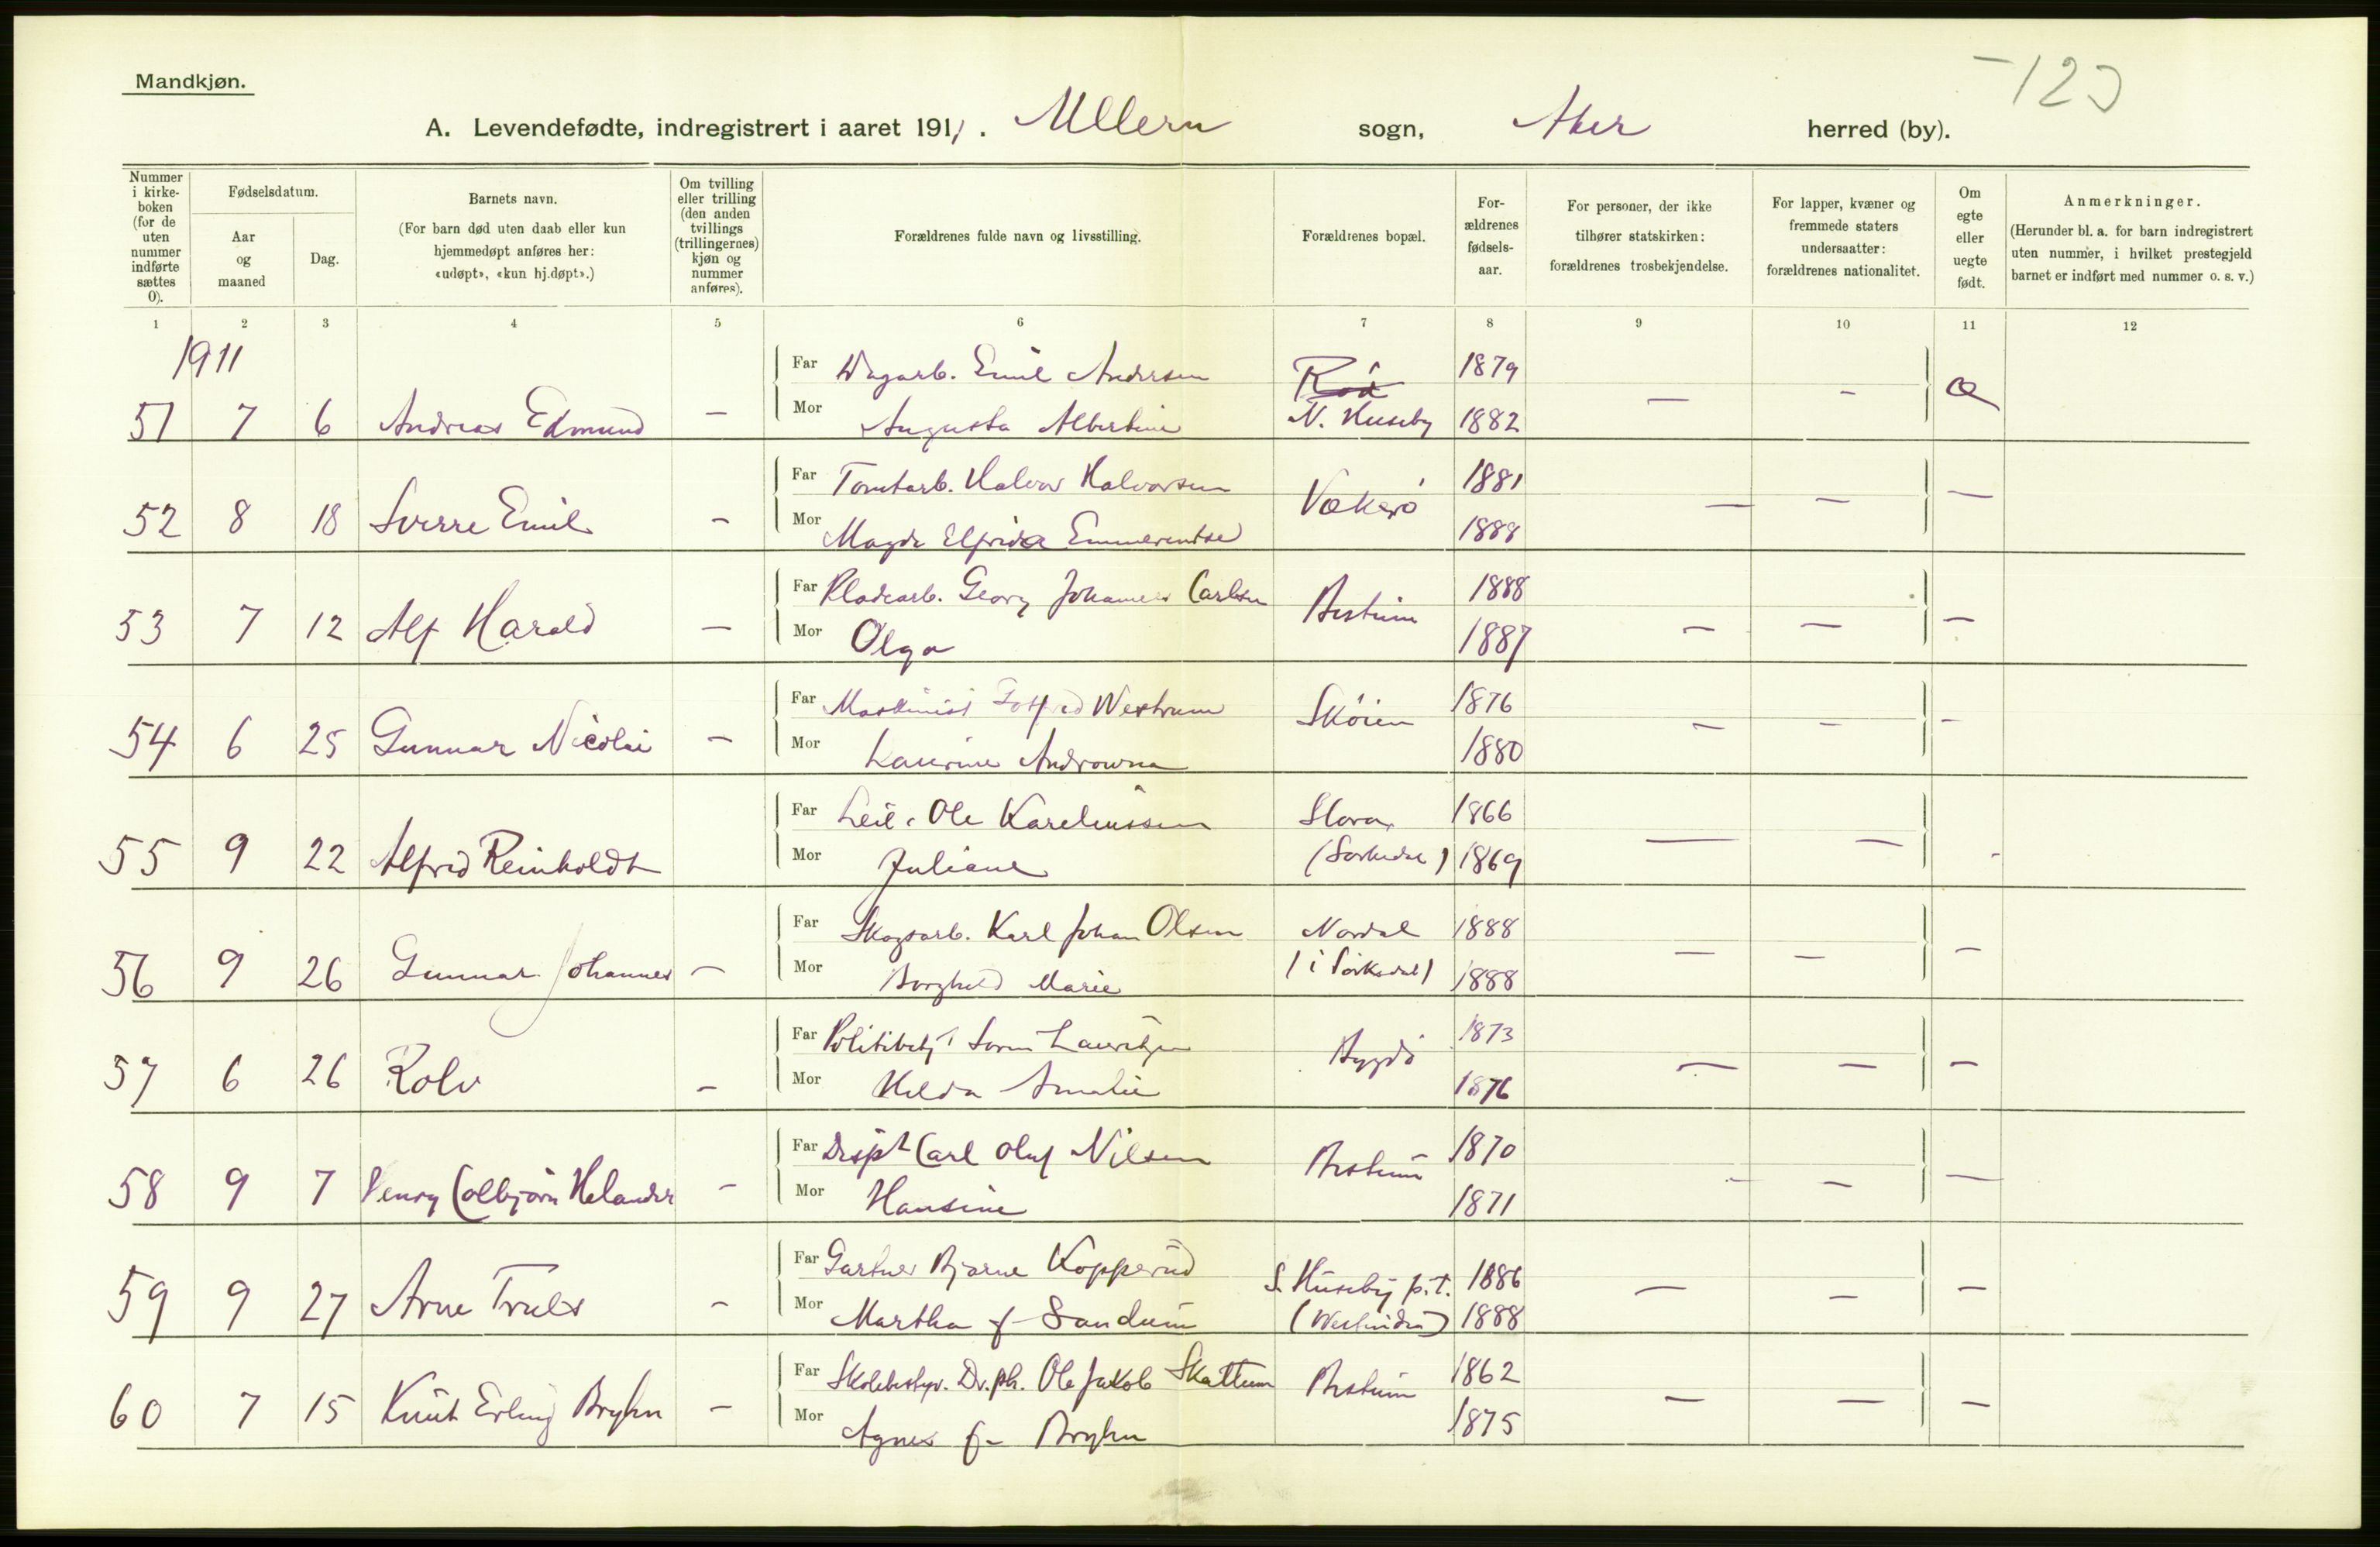 Mandkjøn.
-123
A. Levendefødte, indregistrert i aaret 1911. Ullern sogn, Aker herred (by).
Nummer i kirke- boken (for de uten nummer indførte sættes 0).
Fødselsdatum.
Aar og maaned
Dag.
Barnets navn.
(For barn død uten daab eller kun hjemmedøpt anføres her: «udøpt», «kun hj.døpt».)
Om tvilling eller trilling (den anden tvillings (trillingernes) kjøn og nummer anføres).
Forældrenes fulde navn og livsstilling.
Forældrenes bopæl.
For- ældrenes fødsels- aar.
For personer, der ikke tilhører statskirken: forældrenes trosbekjendelse.
For lapper, kvæner og fremmede staters undersaatter: forældrenes nationalitet.
Om egte eller uegte født.
Anmerkninger.
(Herunder bl. a. for barn indregistrert uten nummer, i hvilket prestegjeld barnet er indført med nummer o. s. v.)
1 2 3 4 5 6 7 8 9 10 11 12
1911
Far Dagarb. Emil Andersen Röa 1879
51 7 6 Andreas Edmund - Mor Augusta Albertine N. Huseby 1882 - - Æ
Far Tomtarb. Halvor Halvorsen Vækerö 1881
52 8 18 Sverre Emil - Mor Magda Elfrida Emmerentse 1888 - - -
Far Pladearb. Georg Johannes Carlsen Bestum 1888
53 7 12 Alf Harald - Mor Olga 1887 - - -
Far Maskinist Gotfred Westrum Sköien 1876
54 6 25 Gunnar Nicolai - Mor Laurine 1880 - - -
Far Leil. Ole Kareliussen 1866
55 9 22 Alfred Reinholdt Mor Juliane (Sørkedal) 1869 - - -
Far Skogsarb. Karl Johan Olsen Nordal 1888
56 9 26 Gunnar Johannes - Mor Borghild Marie (i Sörkedal) 1888 - - -
Far Politibetj. Sören Lauritzen Bygdö 1873
57 6 26 Rolv - Mor Hilda Amalie 1876 - - -
Far Carl Oluf Nilsen Bestum 1870
58 9 7 Henry Colbjörn Helander - Mor Hansine 1871 - - -
Far Gartner Bjarne Kopperud S. Huseby p.t. 1886
59 9 27 Arne Truls - Mor Martha f- Sandum 1888 - - -
Far Skolebestyr. Dr. ph. Ole Jakob Skattum Bestum 1862
60 7 15 Knut Erling Bryhn - Mor Agnes f- Bryhn 1875 - - -